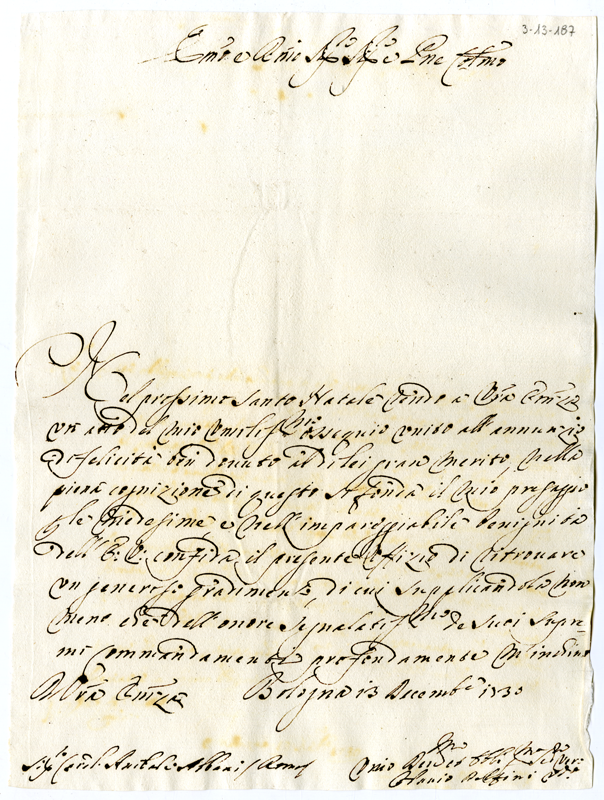 3-13-187
Em̃o e Rm̃o Sigr̃e Sigr̃e e Pñe Colm̃o
Nel prossimo Santo Natale rendo a Vrã Em̃za
un atto del mio umiliss.mo ossequio unito all'annunzio
di felicità ben dovuto al di lei gran merito, nella
piena cognizione di questo si fonda il mio presaggio
le medesime e nell'impareggiabile benignità
dell'E: V: confida il presente Offizio di ritrovare
un generoso gradimento, di cui supplicandola non
meno che dell'onore segnalatiss.mo de suoi supre-
mi commandamenti profondamente m'inchino
D Vrã Em̃za Bologna 13 Decemb.e 1730
Sig.r Card. Anibale Albani Roma
Umo